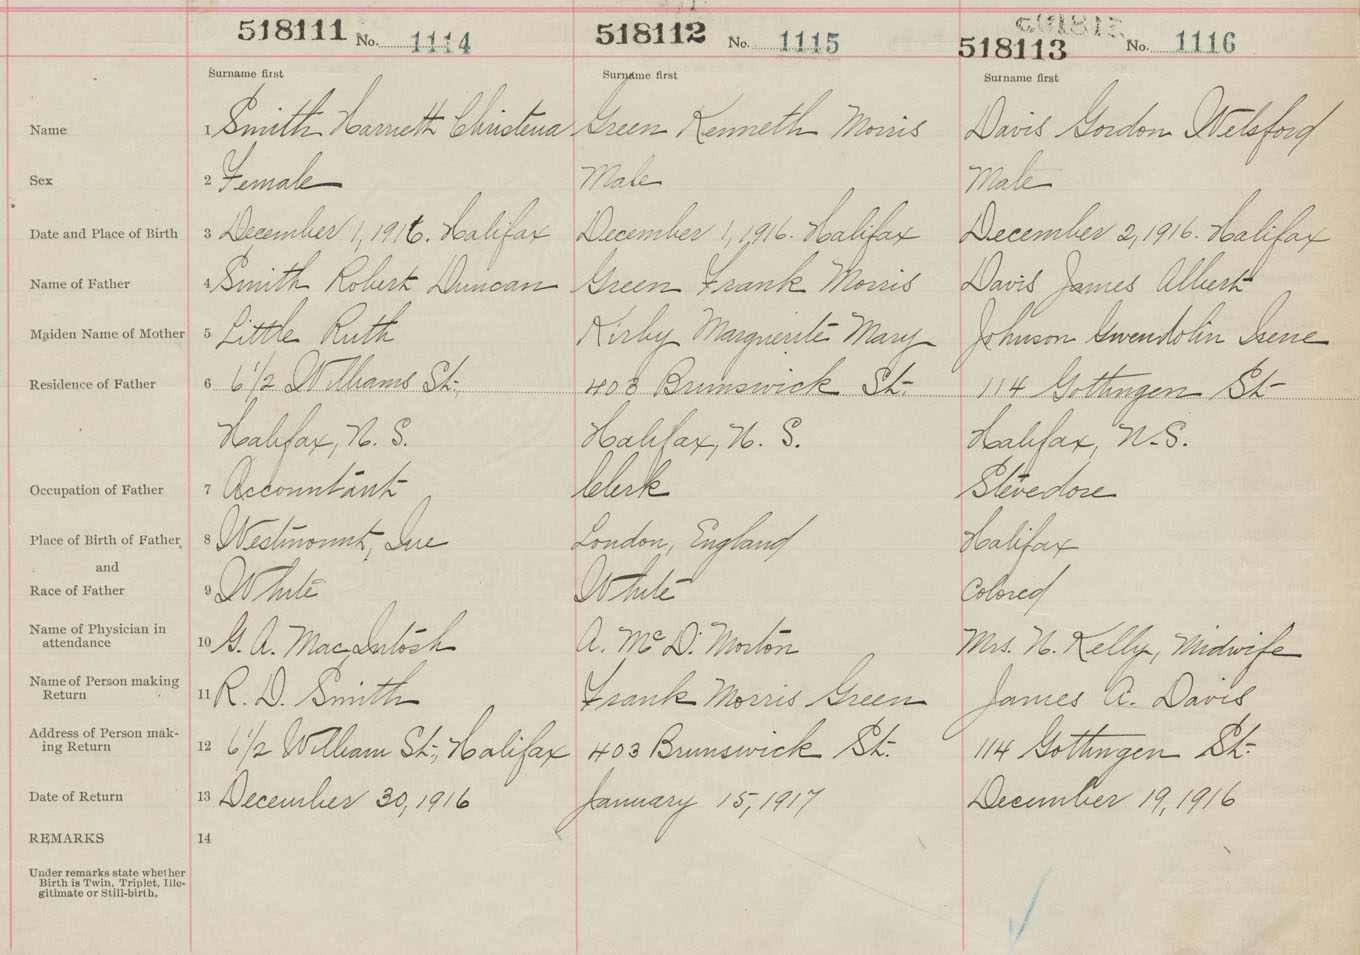 518111 No. 1114 518112 No. 1115 518113 No. 1116
Surname first Surname first Surname first
Name 1 Smith Harriett Christena Green Kenneth Morris Davis Gordon Welsford
Sex 2 Female Male Male
Date and Place of Birth 3 December 1, 1916. Halifax December 1, 1916. Halifax December 2, 1916. Halifax
Name of Father 4 Smith Robert Duncan Green Frank Morris Davis James Albert
Maiden Name of Mother 5 Little Ruth Kirby Marguerite Mary Johnson Gwendolin Irene
Residence of Father 6 6 1/2 Williams St. 403 Brunswick St. 114 Gottingen St
Halifax, N. S. Halifax, N. S. Halifax, N.S.
Occupation of Father 7 Accountant Clerk Stevedore
Place of Birth of Father, 8 Westmount, Que London, England Halifax
and
Race of Father 9 White White Colored
Name of Physician in
attendance 10 G. A. MacIntosh A. McD. Morton Mrs. N. Kelly, Midwife
Name of Person making
Return 11 R. D. Smith Frank Morris Green James A. Davis
Address of Person mak-
ing Return 12 6 1/2 William St., Halifax 403 Brunswick St. 114 Gottingen St.
Date of Return 13 December 30, 1916 January 15, 1917 December 19, 1916
REMARKS 14
Under remarks state whether
Birth is Twin, Triplet, Ille-
gitimate or Still-birth.